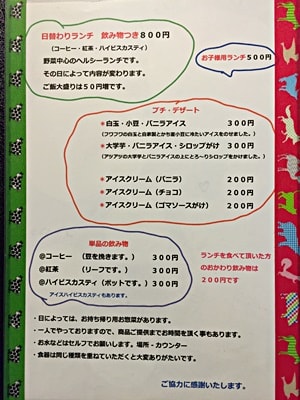 日替わりランチ 飲み物つき８００円
（コーヒー・紅茶・ハイビスカスティ）
野菜中心のヘルシーランチです。
その日によって内容が変わります。
ご飯大盛りは５０円増です。
お子様用ランチ５００円
プチ・デザート
＊白玉・小豆・バニラアイス ３００円
（フワフワの白玉と自家製とかち産小豆に冷たいアイスをのせました。）
＊大学芋・バニラアイス・シロップがけ ３００円
（アツアツの大学芋とバニラアイスの上にとろ～りシロップをかけました。）
＊アイスクリーム（バニラ） ２００円
＊アイスクリーム（チョコ） ２００円
＊アイスクリーム（ゴマソースがけ） ２００円
単品の飲み物
@コーヒー （豆を挽きます。） ３００円
@紅茶 （リーフです。） ３００円
@ハイビスカスティ（ポットです。） ３００円
アイスハイビスカスティもあります。
ランチを食べて頂いた方
のおかわり飲み物は
２００円です
・日によっては、お持ち帰り用お惣菜があります。
・一人でやっておりますので、商品ご提供までお時間を頂く事もあります。
・お水などはセルフでお願いします。場所・カウンター
・食器は同じ種類を重ねていただくと大変ありがたいです。
ご協力に感謝いたします。